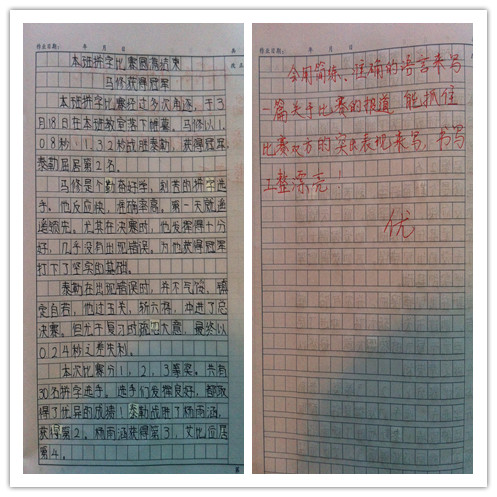 作业日期: 年 月 日
本班拼字比赛圆满结束
马修获得冠军
本班拼字比赛经过多次角逐,于3
月18日在本班教室落下帷幕。马修以1.
08秒、1.32秒战胜泰勒,获得冠军
泰勒屈居第2名。
马修是个勤奋好学、刻苦的拼字选
手。他反应快,准确率高。第一天就遥
遥领先。尤其在决赛时,他发挥得十分
好,几乎没有出现错误。为他获得冠军
打下了坚实的基础。
泰勒在出现错误时,并不气馁。镇
定自若,他过五关,斩六将,冲进了总
决赛。但尤于复习时疏忽大意,最终以
0.24秒之差失利。
本次比赛分1,2,3等奖。共有
30名拼字选手。选手们发挥良好,都取
得了优异的成绩!泰勒战胜了杨雨涵。
获得第2。杨雨涵获得第3,艾比位居
第4。
作业日期: 年 月 日
会用简练、准确的语言来写
一篇关于比赛的报道 能抓住
比赛双方的实际表现来写,书写
工整漂亮!
优